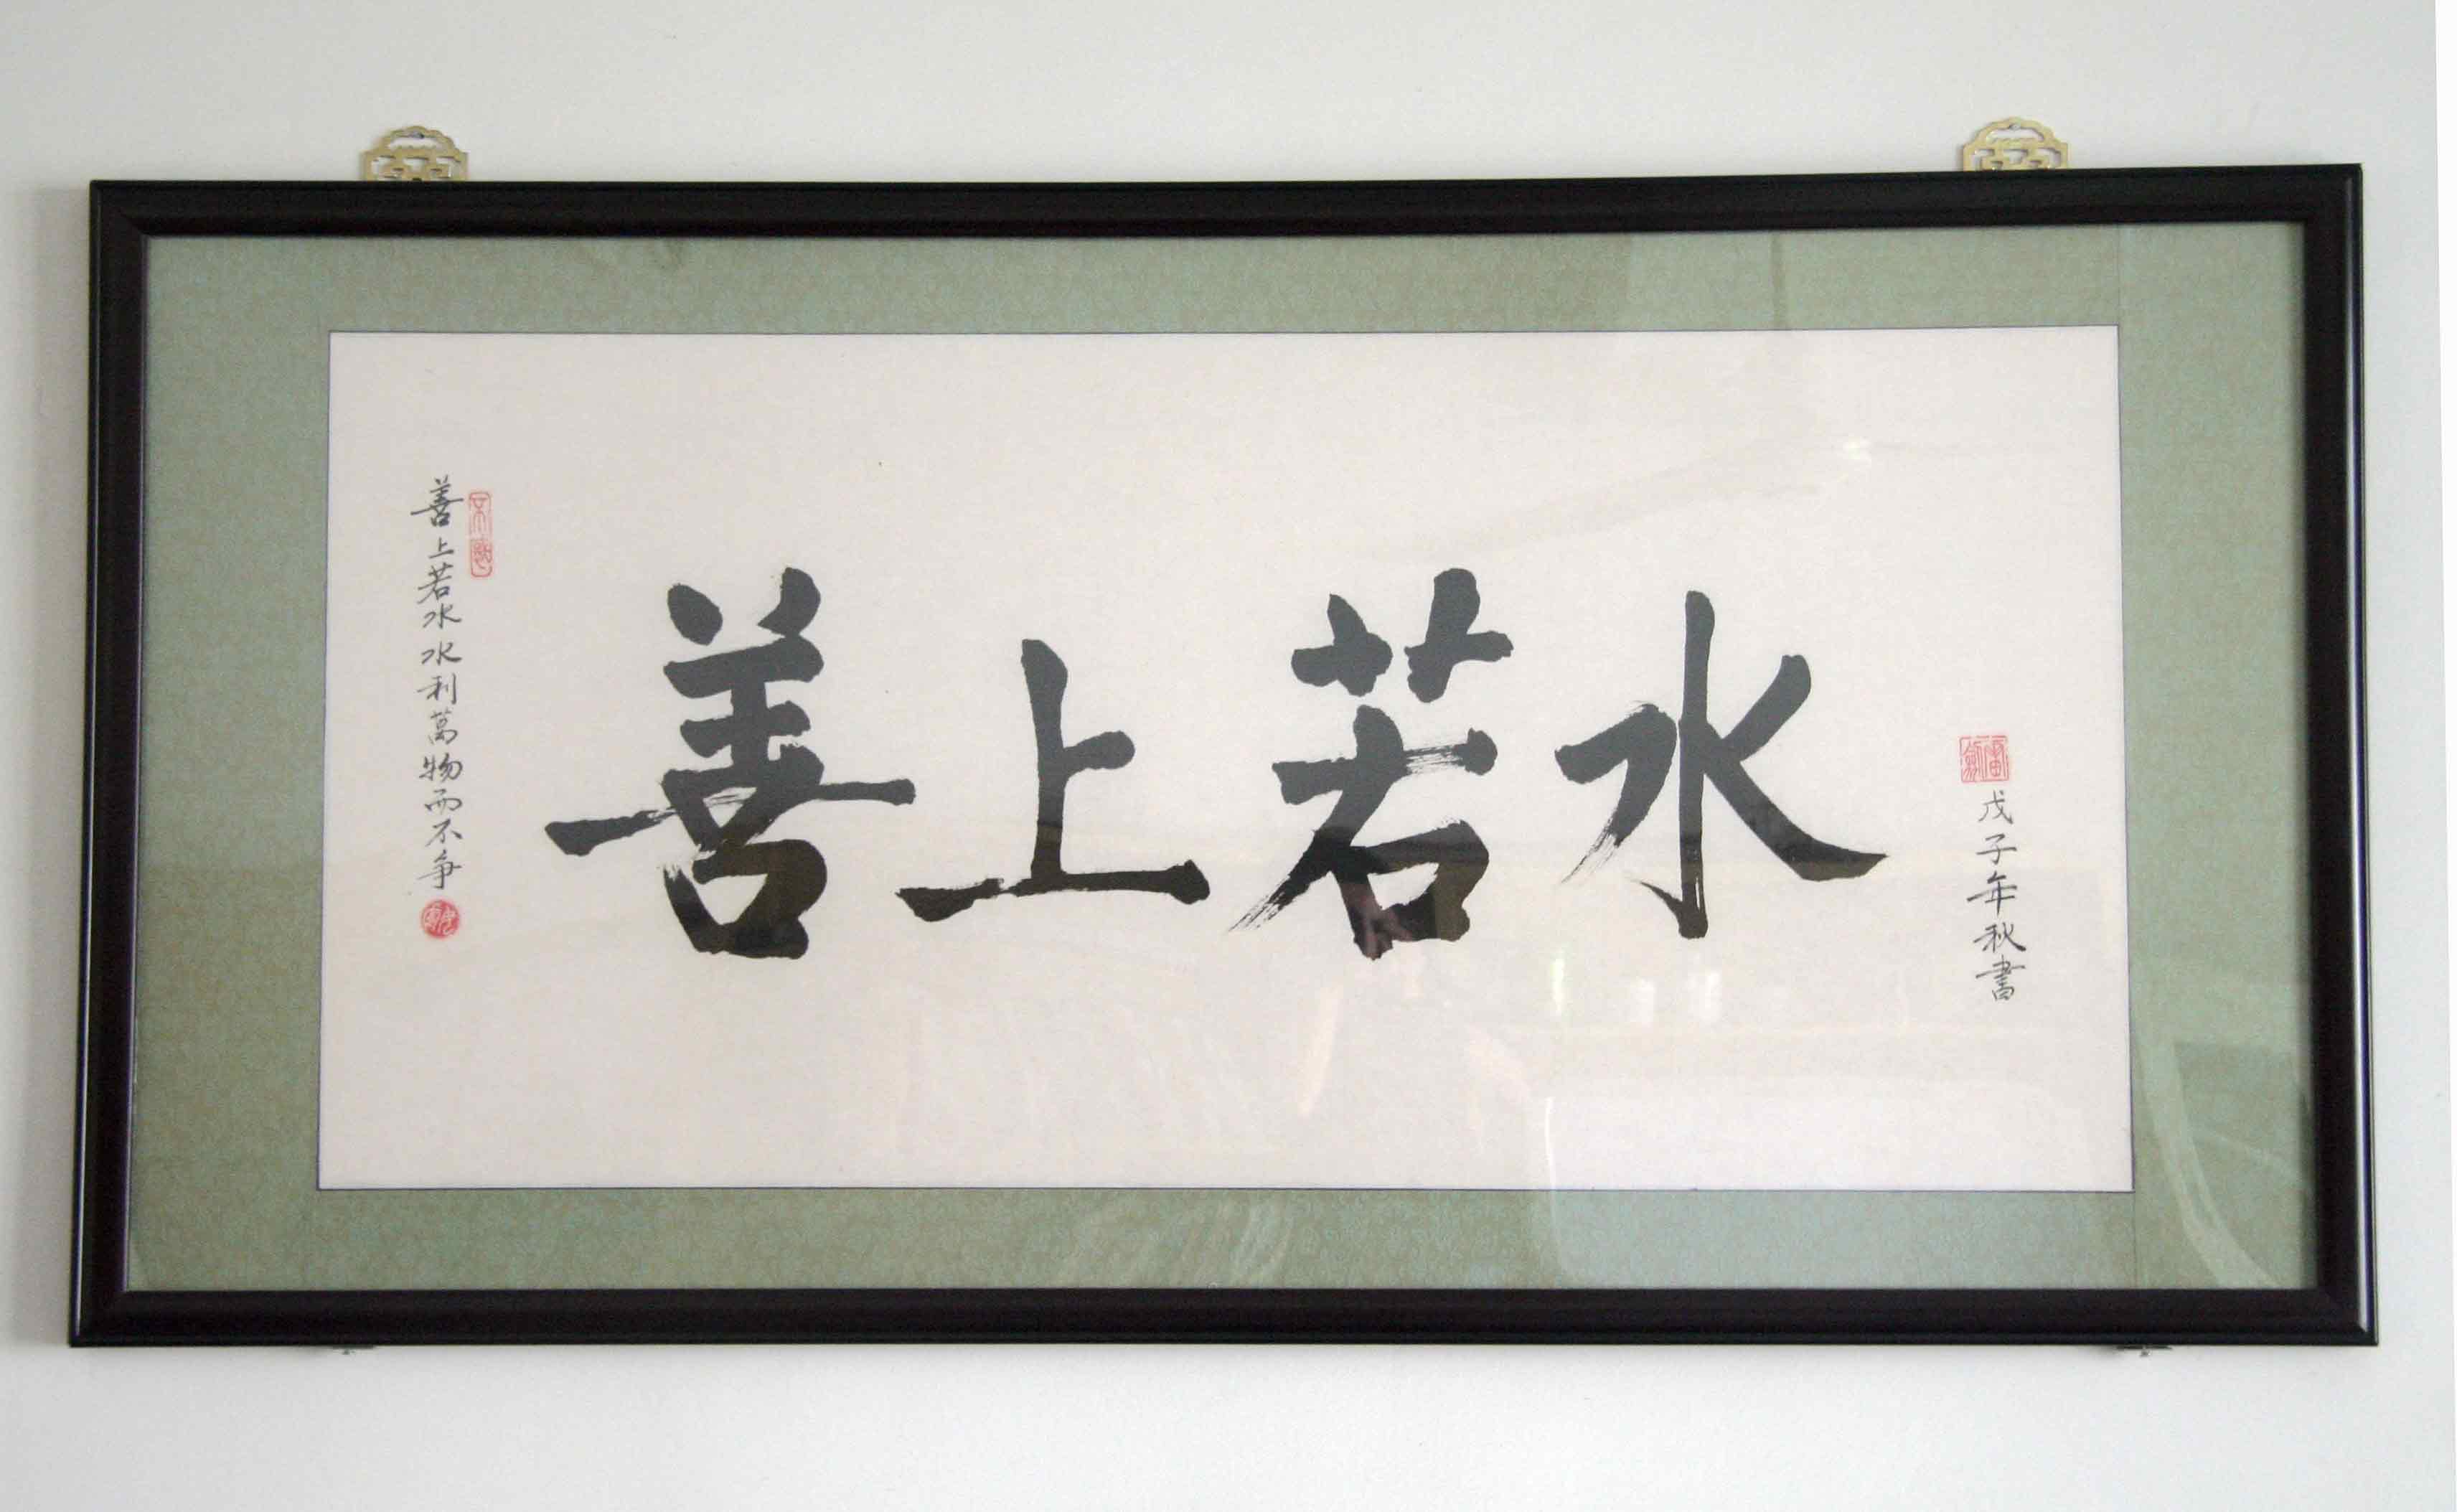 善上若水水利萬物而不争
善上若水
戊子年秋書